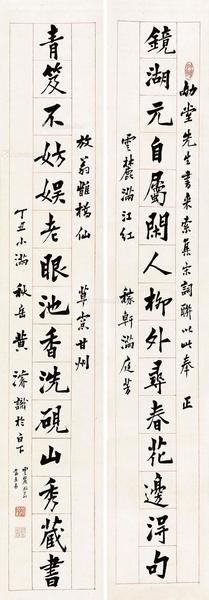 劬堂先生書來索集宋詞聯以此奉 正
鏡湖元自屬閑人柳外尋春花邊得句
雲麓滿江紅 稼軒滿庭芳
放翁鵲橋仙 草窗甘州
青笈不妨娛老眼池香洗硯山秀藏書
丁丑小滿秋岳黃濬識於白下